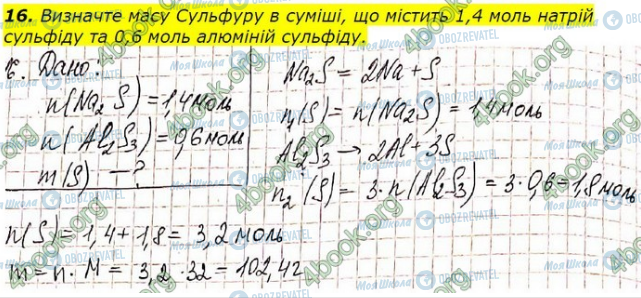 16. Визначте масу Сульфуру в суміші, що містить 1,4 моль натрій
сульфіду та 0,6 моль алюміній сульфіду.
6. Дано:
n(Na₂S)=1,4моль
n(Al₂S₃)=0,6моль
m(S) — ?
Na₂S = 2Na + S
n₁(S) = n(Na₂S) = 1,4 моль
Al₂S₃ → 2Al + 3S
n₂(S) = 3·n(Al₂S₃) = 3·0,6=1,8моль
n(S) = 1,4 + 1,8 = 3,2 моль
m = n · M = 3,2 · 32 = 102,4г